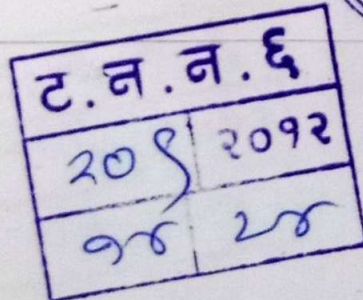 ट.न.न.६
२०९ २०१२
१४ २४